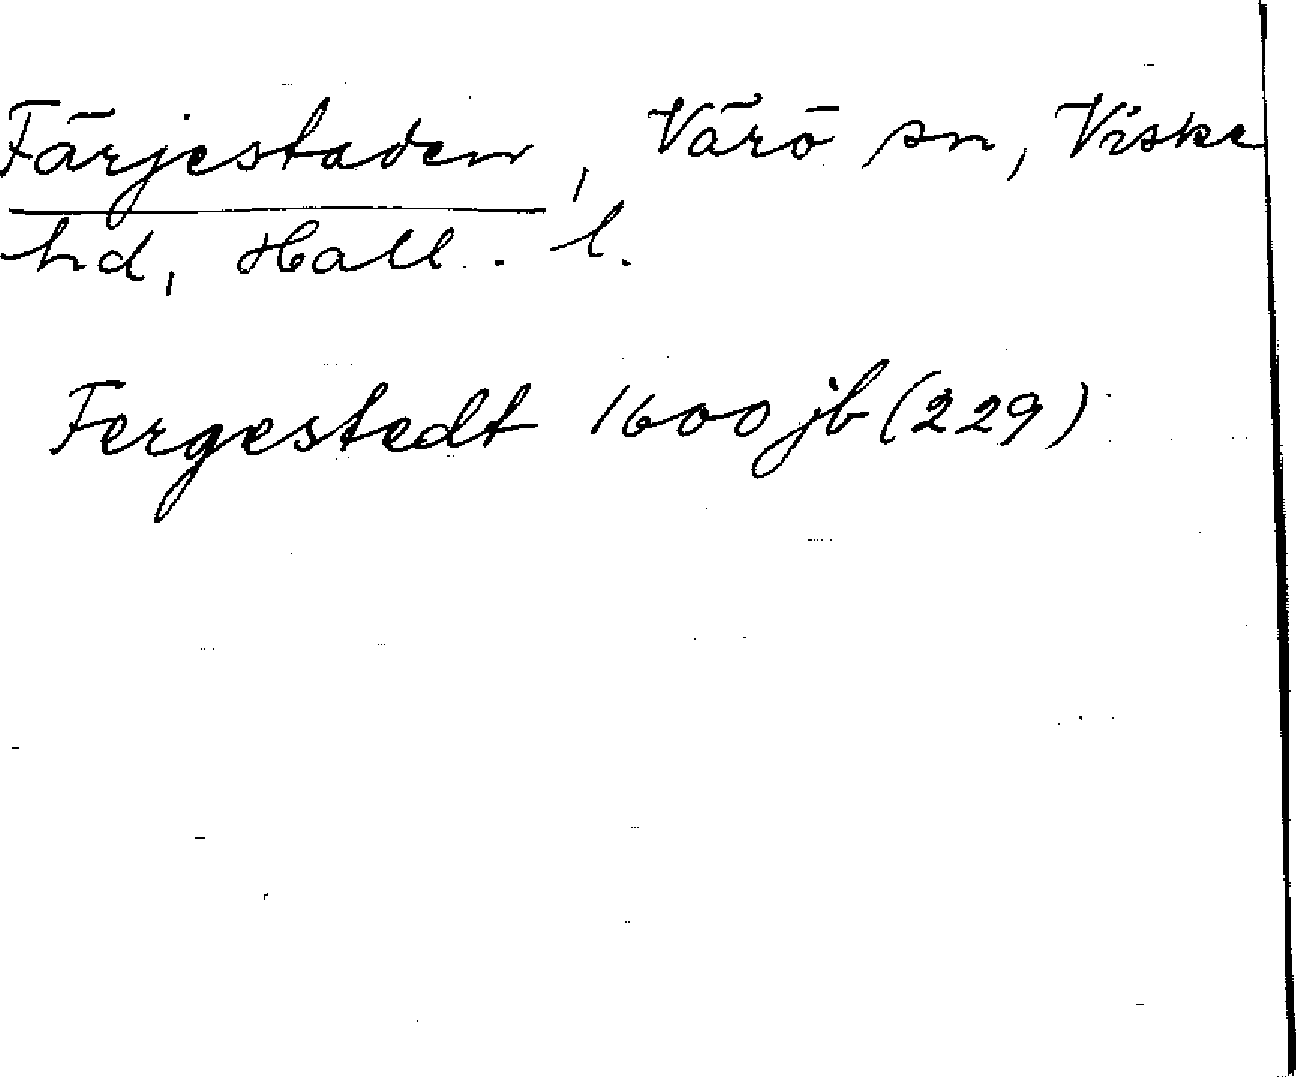 Färjestaden, Värö sn, Viske
hd, Hall. l.
Fergestedt 1600 jb (229)